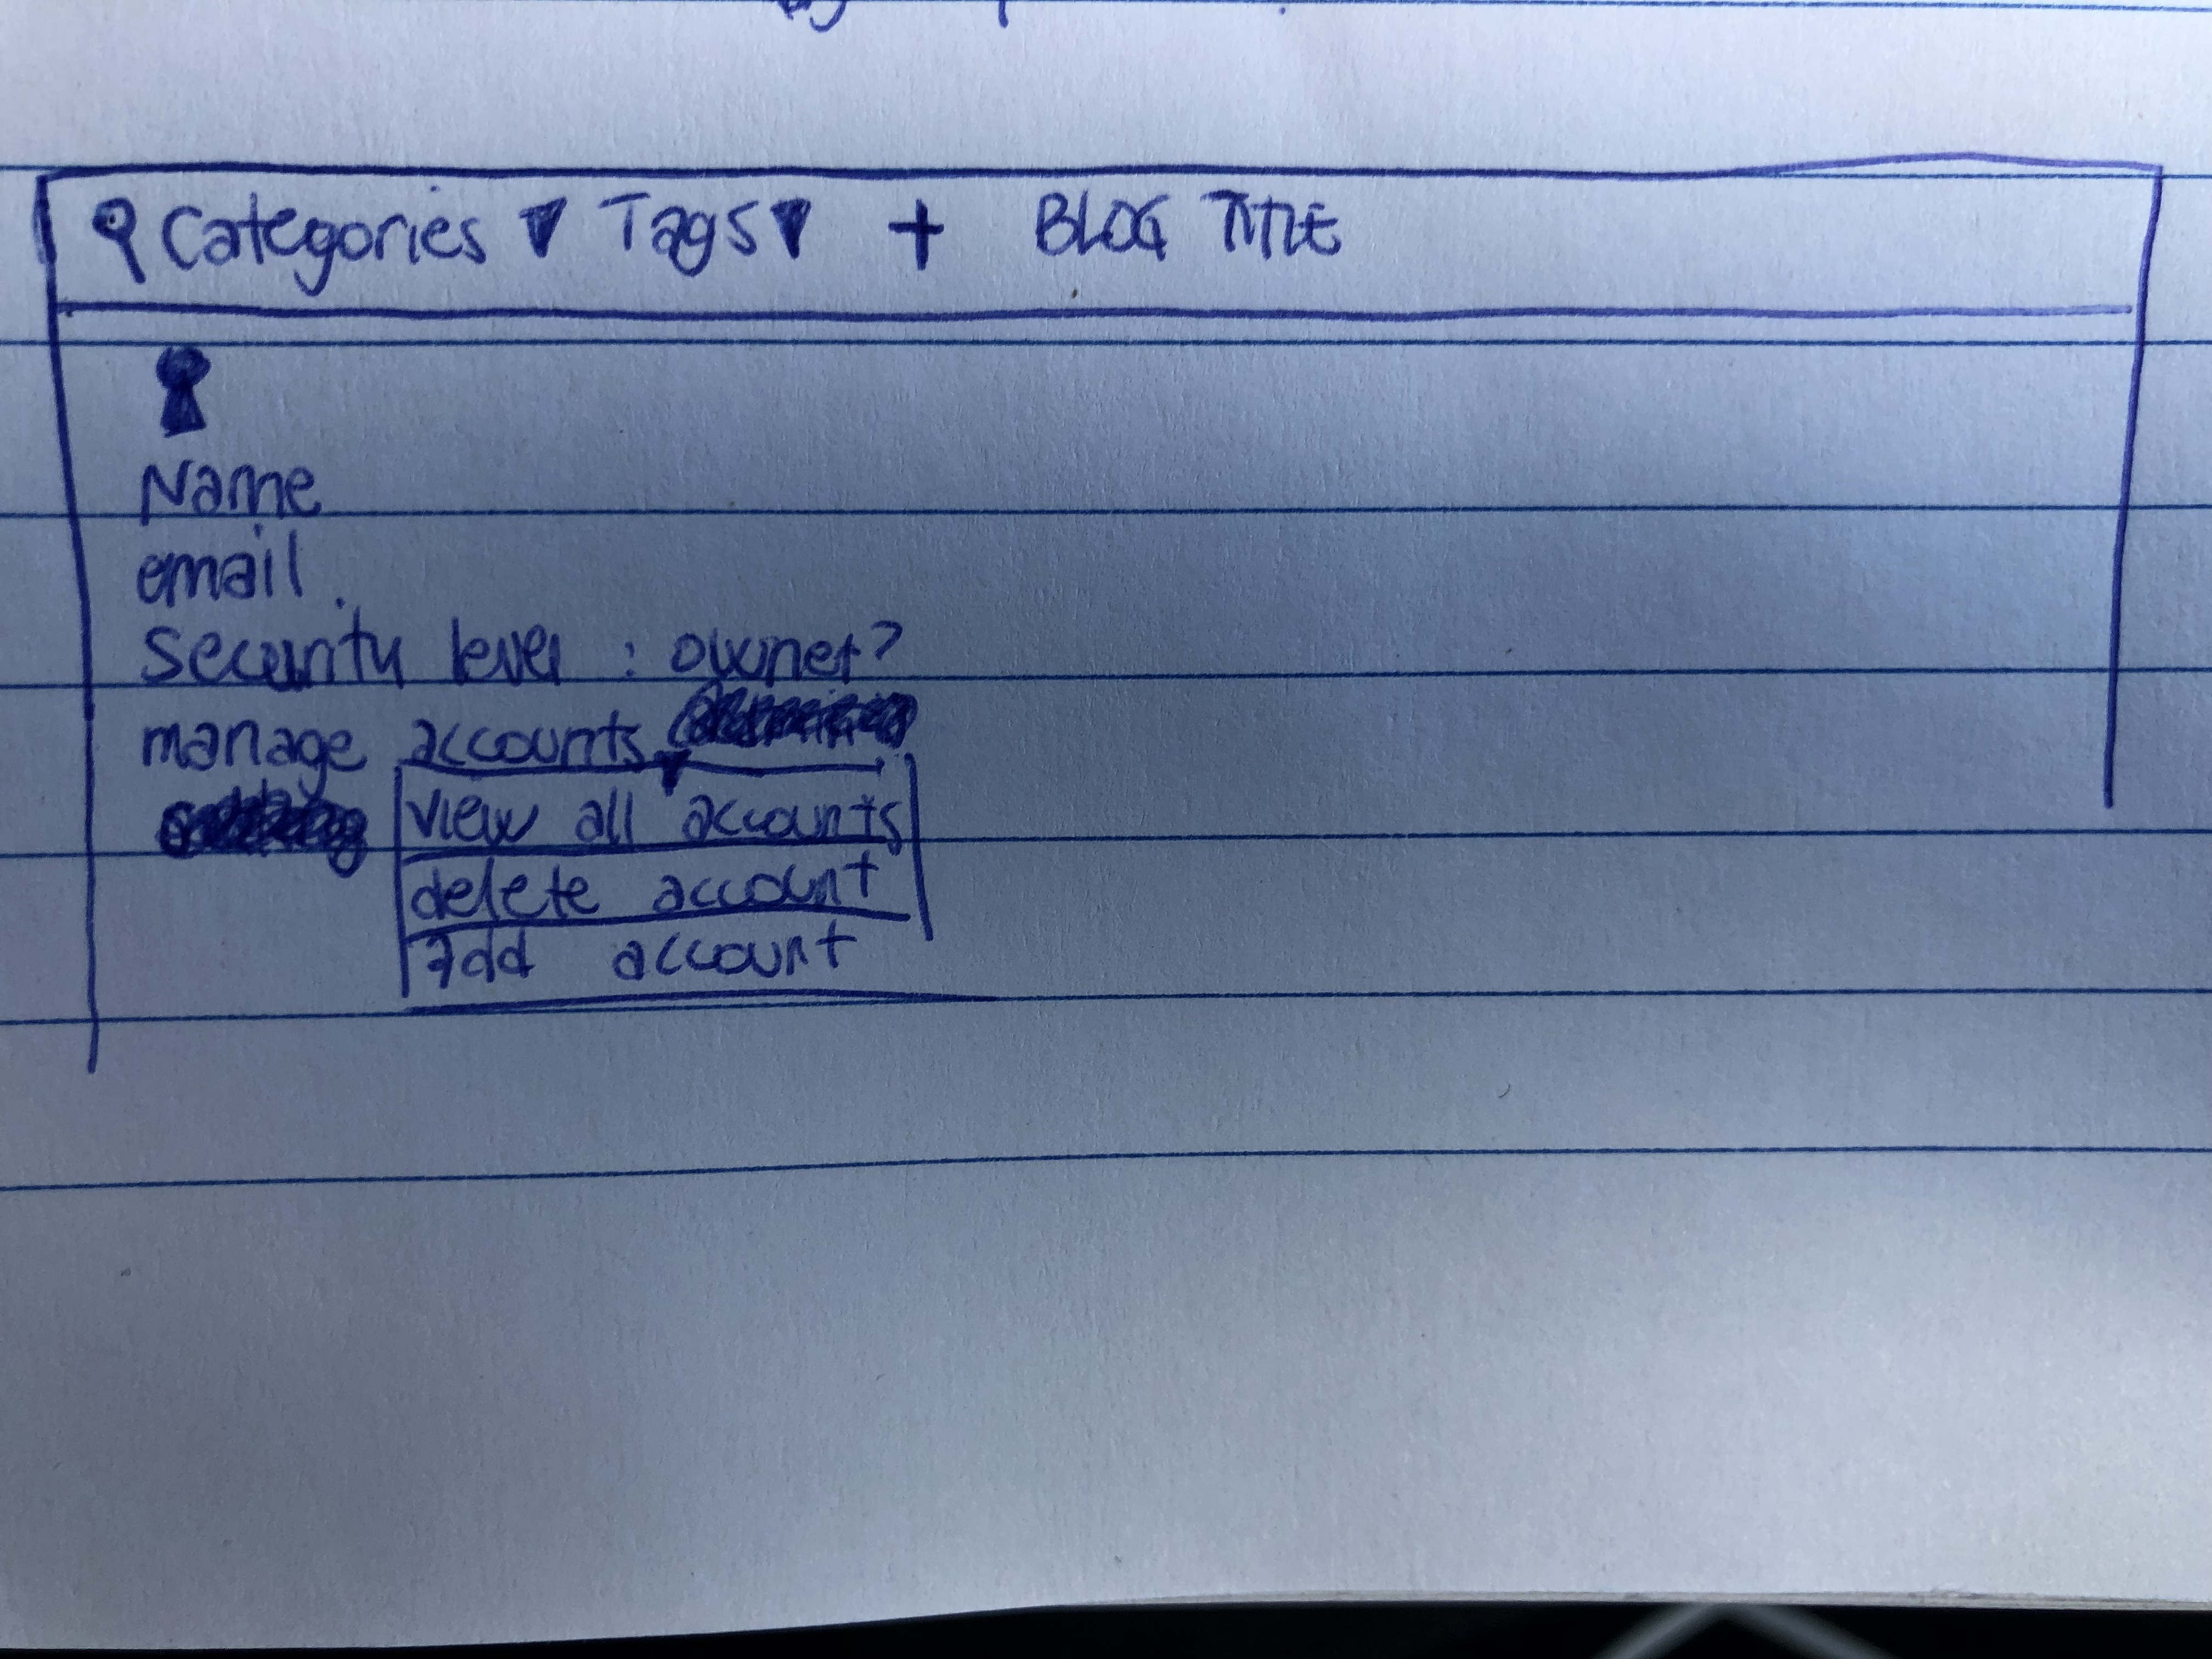 Categories ▼ Tags ▼ + BLOG TITLE
Name
email.
Security level : owner?
manage accounts ▼
view all accounts
delete account
add account